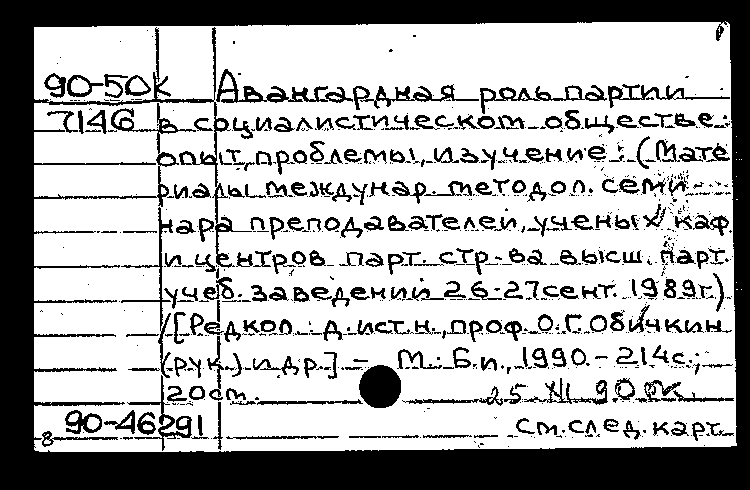 90-50к Авангардная роль партии
7146 в социалистическом обществе:
опыт, проблемы, изучение: (Мате
риалы междунар. методол. семи-
нара преподавателей, ученых каф
и центров парт. стр-ва высш. парт.
учеб. заведений 26-27 сент. 1989г.)
/[Редкол.: д.ист.н., проф. О.Г. Обичкин
(рук.) и др.] - М.: Б.и., 1990. - 214с.;
20см. 25 XII 90
90-46291
8 см. след. карт.